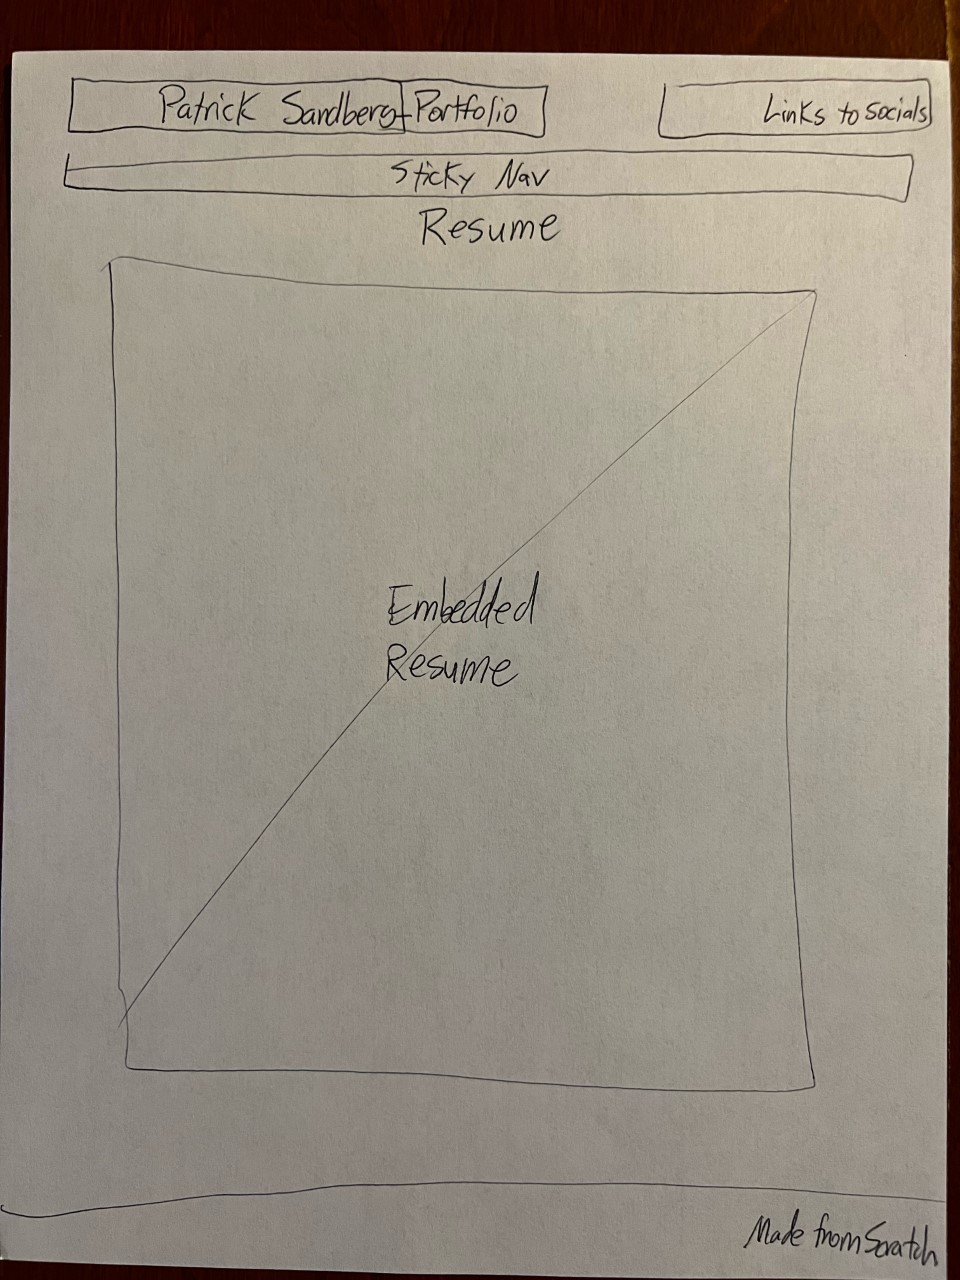 Patrick Sandberg Portfolio
Links to socials
Sticky Nav
Resume
Embedded
Resume
Made from Scratch